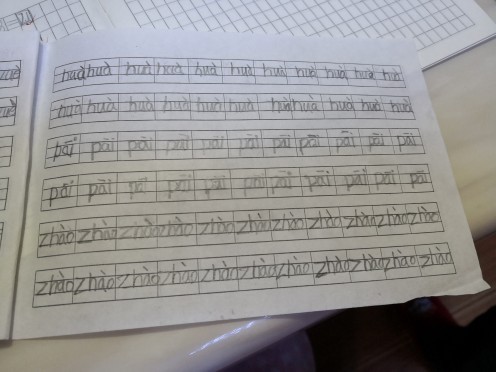 huà huà huà huà huà huà huà huà huà huà huà
huà huà huà huà huà huà huà huà huà huà huà
pāi pāi pāi pāi pāi pāi pāi pāi pāi pāi pāi
pāi pāi pāi pāi pāi pāi pāi pāi pāi pāi pāi
zhào zhào zhào zhào zhào zhào zhào zhào zhào zhào zhào
zhào zhào zhào zhào zhào zhào zhào zhào zhào zhào zhào